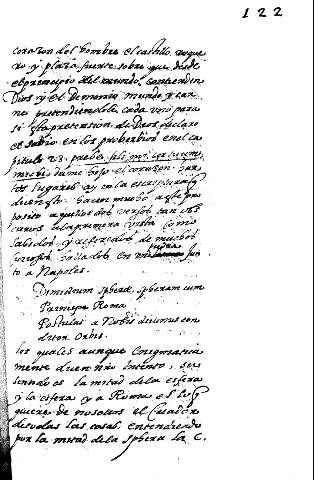 122
corazon del hombre el castillo roque
ro, y plaza fuerte sobre que desde
el principio del mundo contienden
Dios y el Demonio mundo y car
ne pretendiendole cada uno para
si. Esta pretension de Dios declaro
el sabio en los proverbios en el ca
pitulo 23. prebe fili mi cor tuum
mihi dame hijo el corazon.
lugares ay en la escriptura
duen esto. hacen mucho a este pro
posito aquellos dos versos tan obs
curos a la primera vista como
sabidos y referidos de muchos
curiosos hallados en piedra jun
to a Napoles.
Dimidium spherę, spheram cum
Principe Roma
Postulat a Nobis diuinus con
ditor Orbis.
los quales aunque Enigmatica
mente dicen mio intento, su
sentido es la mitad de la esfera
y la esfera y a Roma es lo q
quiere de nosotros el Criador
de todas las cosas. entendiendo
por la mitad de la sphera la C.